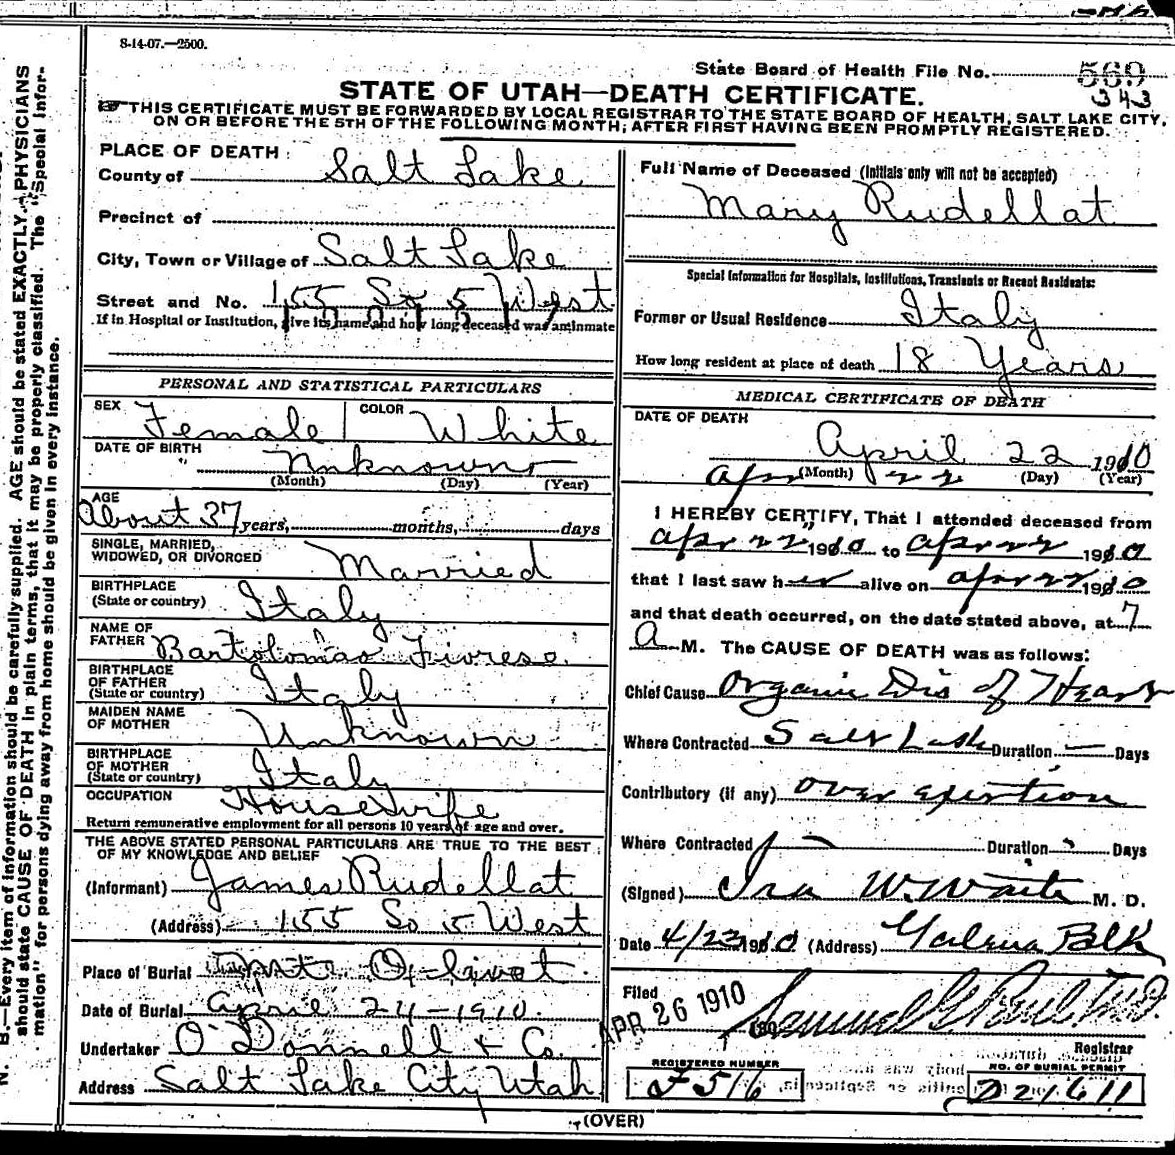 8-14-07.—2500.
State Board of Health File No. 569
343
STATE OF UTAH—DEATH CERTIFICATE.
THIS CERTIFICATE MUST BE FORWARDED BY LOCAL REGISTRAR TO THE STATE BOARD OF HEALTH, SALT LAKE CITY,
ON OR BEFORE THE 5TH OF THE FOLLOWING MONTH; AFTER FIRST HAVING BEEN PROMPTLY REGISTERED.
N. B.—Every item of information should be carefully supplied. AGE should be stated EXACTLY. PHYSICIANS
should state CAUSE OF DEATH in plain terms, that it may be properly classified. The "Special Infor-
mation" for persons dying away from home should be given in every instance.
PLACE OF DEATH:
County of Salt Lake
Precinct of
City, Town or Village of Salt Lake
Street and No. 155 So 5 West
If in Hospital or Institution, give its name and how long deceased was an inmate
PERSONAL AND STATISTICAL PARTICULARS
SEX Female COLOR White
DATE OF BIRTH Unknown
(Month) (Day) (Year)
AGE
About 37 years, months, days
SINGLE, MARRIED,
WIDOWED, OR DIVORCED Married
BIRTHPLACE
(State or country) Italy
NAME OF
FATHER Bartolomao Fiorese
BIRTHPLACE
OF FATHER
(State or country) Italy
MAIDEN NAME
OF MOTHER Unknown
BIRTHPLACE
OF MOTHER
(State or country) Italy
OCCUPATION Housewife
Return remunerative employment for all persons 10 years of age and over.
THE ABOVE STATED PERSONAL PARTICULARS ARE TRUE TO THE BEST
OF MY KNOWLEDGE AND BELIEF
(Informant) James Rudellat
(Address) 155 So 5 West
Place of Burial Mt Olivet
Date of Burial April 24-1910.
Undertaker O'Donnell & Co.
Address Salt Lake City Utah
Full Name of Deceased (Initials only will not be accepted)
Mary Rudellat
Special Information for Hospitals, Institutions, Transients or Recent Residents:
Former or Usual Residence Italy
How long resident at place of death 18 Years
MEDICAL CERTIFICATE OF DEATH
DATE OF DEATH
April 22 1910
Apr (Month) 22 (Day) (Year)
I HEREBY CERTIFY, That I attended deceased from
Apr 22 1910 to Apr 22 1910
that I last saw her alive on Apr 22 1910
and that death occurred, on the date stated above, at 7
A M. The CAUSE OF DEATH was as follows:
Chief Cause Organic Dis of Heart
Where Contracted Salt Lake Duration — Days
Contributory (if any) over exertion
Where Contracted Duration Days
(Signed) Ira W. Waite M. D.
Date 4/23 1910 (Address)
Filed
APR 26 1910
Registrar
REGISTERED NUMBER
F 516
NO. OF BURIAL PERMIT
D21611
(OVER)